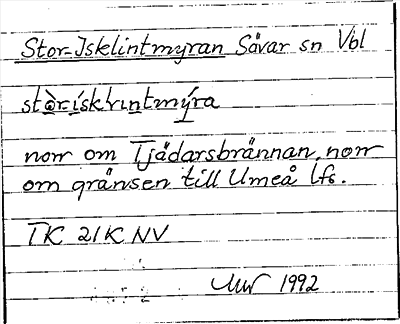 Stor-Isklintmyran Sävar sn Vbl
stòrísklıntmýra
norr om Tjädarsbrännan, norr
om gränsen till Umeå lfs.
TK 21K NV
1992